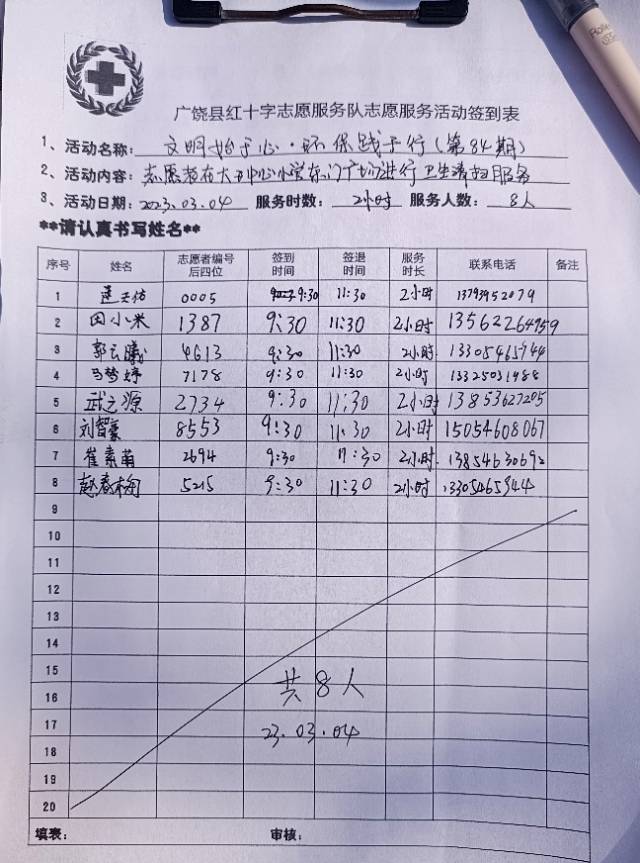 广饶县红十字志愿服务队志愿服务活动签到表
1、活动名称：文明始于心·环保践于行（第84期）
2、活动内容：志愿者在大王中心小学东门广场进行卫生清扫服务
3、活动日期：2023.03.04 服务时数：2小时 服务人数：8人
**请认真书写姓名**
序号 姓名 志愿者编号后四位 签到时间 签退时间 服务时长 联系电话 备注
1 0005 9:30 11:30 2小时 13793952079
2 田小米 1387 9:30 11:30 2小时 13562264959
3 郭云曦 4613 9:30 11:30 2小时 13305465944
4 马梦婷 7178 9:30 11:30 2小时 13325031988
5 武之源 2734 9:30 11:30 2小时 13853627205
6 刘智豪 8553 9:30 11:30 2小时 15054608067
7 崔素萌 2694 9:30 11:30 2小时 13854630692
8 5215 9:30 11:30 2小时 13305465944
9
10
11
12
13
14
15
16 共8人
17 23.03.04
18
19
20
填表： 审核：